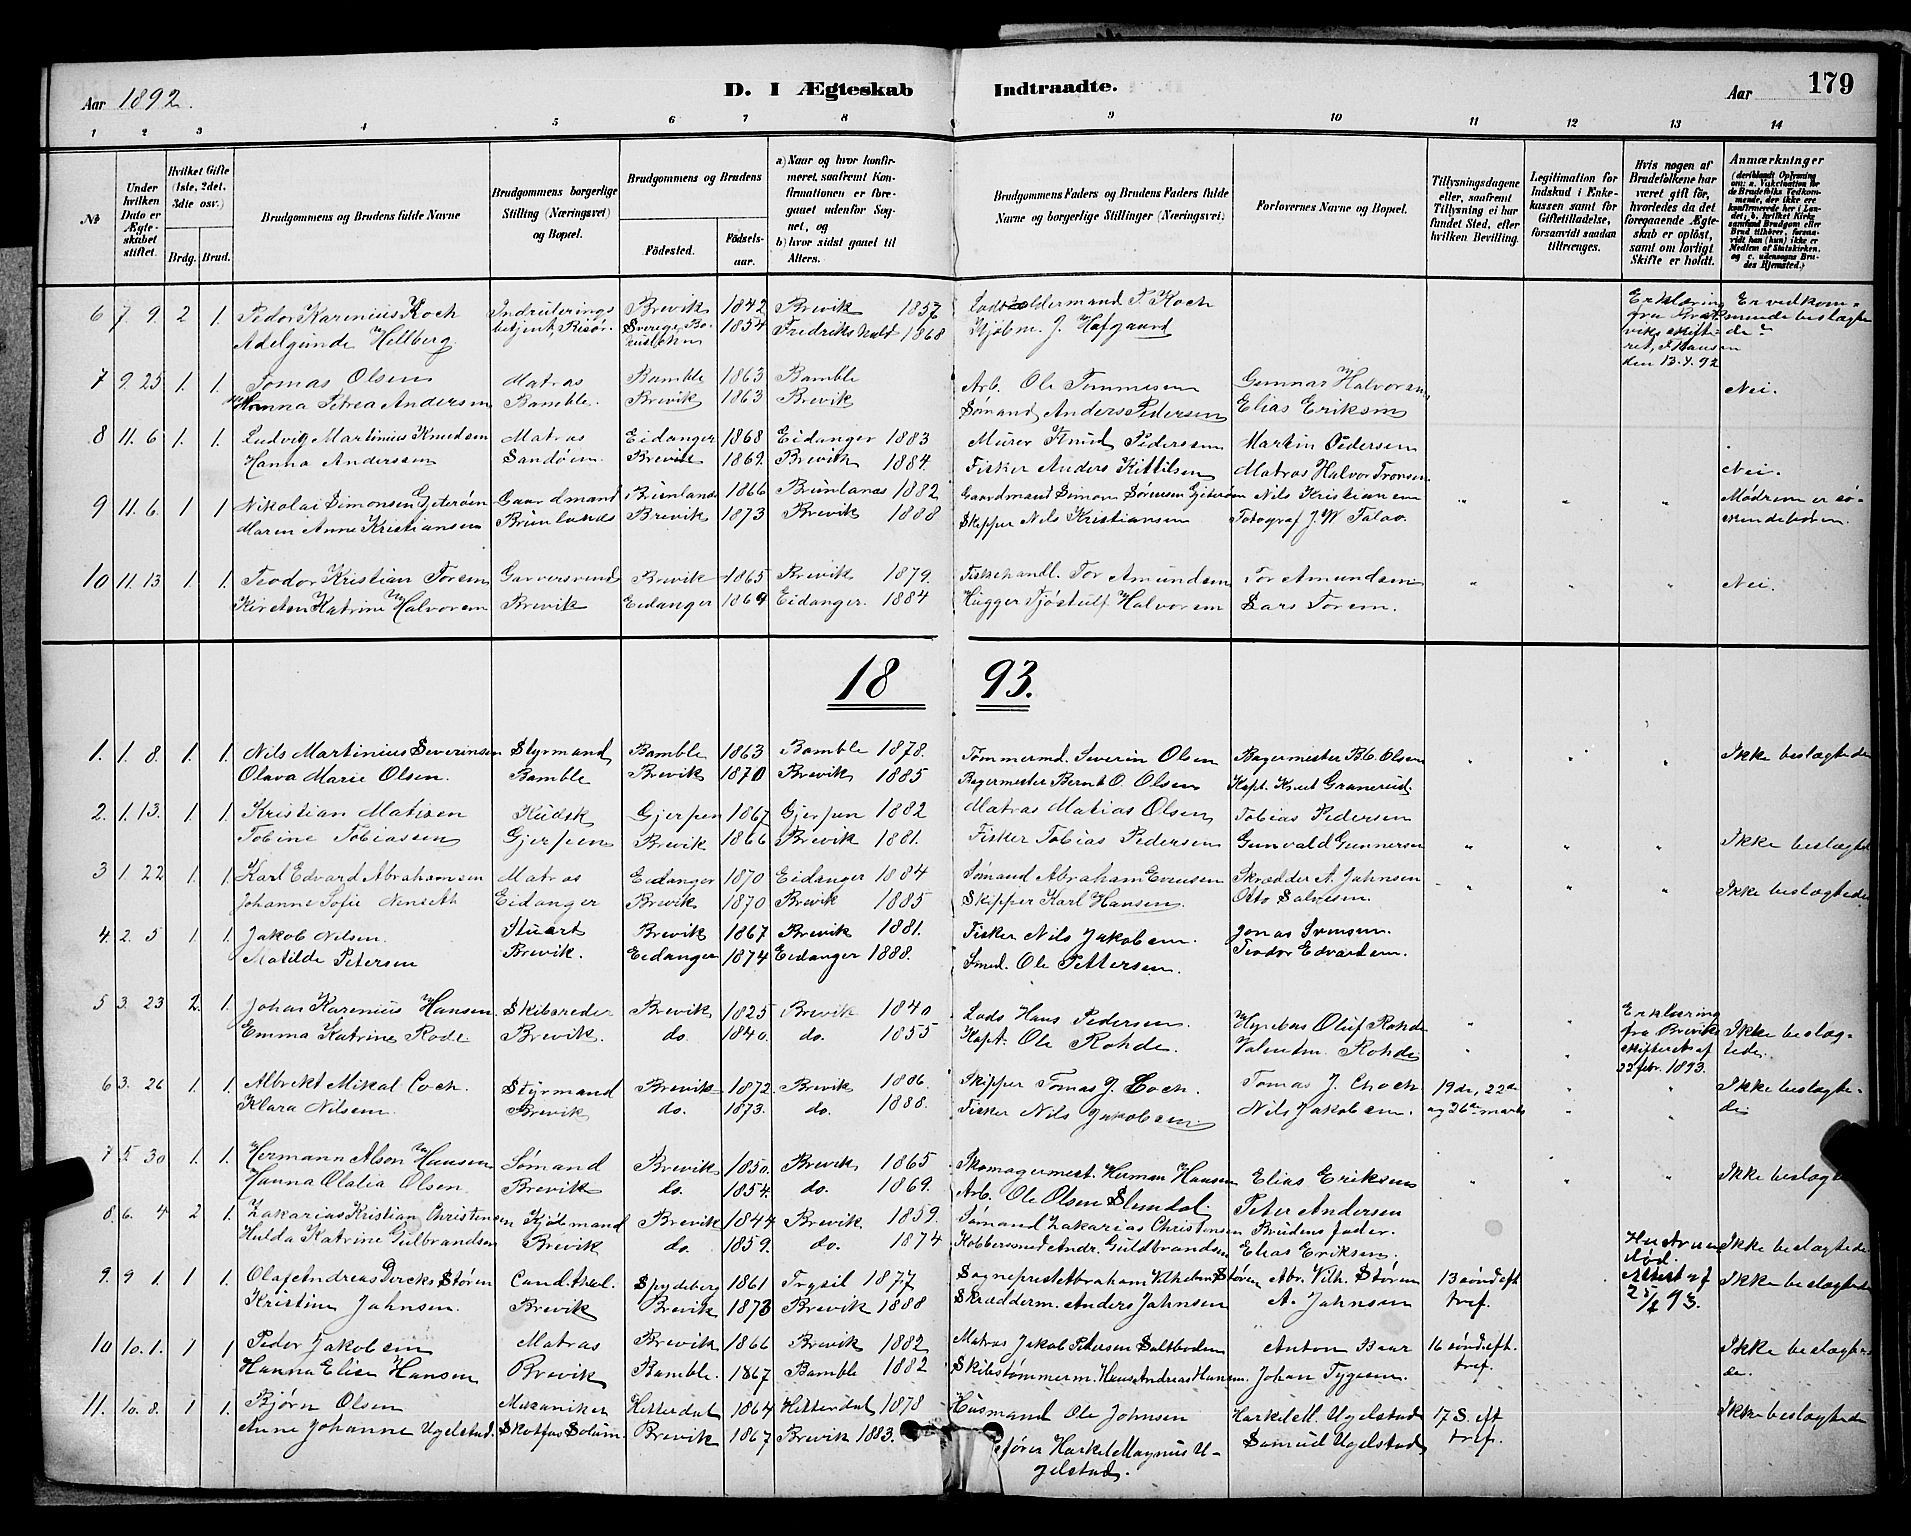 Aar 1892.
D. I Ægteskab Indtraadte.
Aar
179
1 2 3 4 5 6 7 8 9 10 11 12 13 14
№
Under hvilken Dato er Ægteskabet stiftet.
Hvilket Gifte (1ste, 2det, 3die osv.)
Brdg. Brud.
Brudgommens og Brudens fulde Navne
Brudgommens borgerlige Stilling (Næringsvei) og Bopæl.
Brudgommens og Brudens
Fødested. Fødselsaar.
a) Naar og hvor konfirmeret, saafremt Konfirmationen er foregaaet udenfor Sognet, og
b) hvor sidst gaaet til Alters.
Brudgommens Faders og Brudens Faders fulde Navne og borgerlige Stillinger (Næringsvei).
Forlovernes Navne og Bopæl.
Tillysningsdagene eller, saafremt Tillysning ei har fundet Sted, efter hvilken Bevilling.
Legitimation for Indskud i Enkekassen samt for Giftetilladelse, forsaavidt saadan tiltrænges.
Hvis nogen af Brudefolkene har været gift før, hvorledes da det foregaaende Ægteskab er opløst, samt om lovligt Skifte er holdt.
Anmærkninger (deriblandt Oplysning om: a. Vakcination for de Brudefolks Vedkommende, der ikke ere konfirmerede her i Landet, b. hvilket Kirkesamfund Brudgom eller Brud tilhører, forsaavidt han (hun) ikke er Medlem af Statskirken, og c. udensogns Brudes Hjemsted.)
6 7 9. 2 1. Peder Karenius Koch Indrullerings Brevik 1842 Brevik 1857 Lodsoldermand P. Koch Erklæring Er vedkom-
Adelgunde Hellberg. betjent, Risør. Sverige, Bo- 1854 Fredrikshald 1868 Kjøbm. J. Hafgaard mende beslægte
den 13.4.92 de?
7 9. 25 1. 1. Tomas Olsen Matros Bamble 1863 Bamble Arb. Ole Tommesen Gunnar Halvorsen
Hanna Petrea Andersen Bamble. Brevik 1863 Brevik Sømand Anders Pedersen Elias Eriksen Nei.
8 11. 6 1. 1. Ludvig Martinius Knudsen Matros Eidanger 1868 Eidanger 1883 Murer Knud Pedersen Martin Pedersen
Hanna Andersen Sandøen. Brevik 1869. Brevik 1884. Fisker Anders Kittilsen Matros Halvor Tronsen Nei.
9 11. 6. 1 1 Nikolai Simonsen Gjeterøen Gaardmand Brunlanes 1866 Brunlanes 1882 Gaardmand Simon Sørensen Gjeterøen Nils Kristiansen " " " Mødrene er sø-
Maren Anne Kristiansen Brunlanes Brevik 1873 Brevik 1888 Skipper Nils Kristiansen Fotograf J. W. skendebørn.
10 11. 13 1. 1. Teodor Kristian Torsen Garversvend Brevik 1865 Brevik 1879. Fiskehandl. Tor Amundsen Tor Amundsen " " " Nei.
Kirsten Katrine Halvorsen Brevik Eidanger 1869 Eidanger. 1884 Hugger Tjøstulf Halvorsen Lars Torsen.
1893.
1. 1. 8. 1. 1. Nils Martinius Severinsen Styrmand Bamble 1863 Bamble 1878. Tømmermd. Severin Olsen Bagermester B. O. Olsen " " " Ikke beslægtede
Olava Marie Olsen. Bamble Brevik 1870 Brevik 1885 Bagermester Bernt O. Olsen Kapt. Knut Granerud.
2. 1. 13. 1 1. Kristian Matisen Kudsk Gjerpen 1867 Gjerpen 1882 Matros Matias Olsen Tobias Pedersen
Tobine Tobiassen Gjerpen Brevik 1866 Brevik 1881. Fisker Tobias Pedersen Gunvald Gunnersen " " " Ikke beslægtede
3 1. 22 1. 1. Karl Edvard Abrahamsen Matros Eidanger 1870 Eidanger 1884 Sømand Abraham Evensen Skrædder A. Jahnsen " " "
Johanne Sofie Eidanger Brevik 1870 Brevik 1885 Skipper Karl Hansen. Otto Salvesen. Ikke beslægtede
4. 2. 5 1. 1. Jakob Nilsen. Stuart Brevik 1867 Brevik 1881. Fisker Nils Jakobsen. Jonas Svensen.
Matilde Petersen Brevik. Eidanger 1874 Eidanger 1888. Smed. Ole Pettersen. Teodor Edvardsen.
5 3. 23 2. 1. Johan Karenius Hansen Skibsreder Brevik 1825 Brevik 1840 Lods Hans Pedersen. Hyrebas Oluf Rohde " Erklæring Ikke beslæg-
Emma Katrine Rode Brevik. do. 1840. do. 1855 Kapt. Ole Rohde. Valentin Rohde " " fra Brevik tede.
skifteret af
22 febr. 1893.
6 3. 26 1. 1. Albrekt Mikal Coch. Styrmand Brevik 1872 Brevik 1886. Skipper Tomas J. Coch. Tomas J. Choch 19de, 22de " " Ikke beslægte-
Klara Nilsen. Brevik do. 1873. do. 1888. Fisker Nils Jakobsen. Nils Jakobsen. og 26de marts " " de
7 5 30 1. 1. Hermann Alson Hansen Sømand Brevik 1850. Brevik 1865 Skomagermest. Herman Hansen Elias Eriksen
Hanna Olalia Olsen. Brevik do. 1854. do. 1869. Arb. Ole Olsen Slemdal. Peter Andersen " " " Ikke beslægtede
8. 6. 4 2 1. Zakarias Kristian Christensen Kjøbmand Brevik 1844 Brevik. 1859. Sømand Zakarias Christensen Brudens fader.
Hulda Katrine Gulbrandsen Brevik do. 1859. do. 1874 Kobbersmed Andr. Guldbrandsen Elias Eriksen. Hustruen Ikke beslægtede
død.
9. 9 1. 1 1. Olaf Andreas Dircks Støren Cand. theol. Spydeberg 1861 Trysil 1877 Sogneprest Abraham Vilhelm Støren Abr. Vilh. Støren 13 sønd eft Attest af Ikke beslægtede
Kristine Jahnsen. Brevik Brevik 1873 Brevik 1888 Skrædderm. Anders Jahnsen A. Jahnsen tref.
10 10. 1. 1 1 Peder Jakobsen Matros Brevik 1866 Brevik 1882 Matros Jakob Petersen Saltboden Anton Baar 16 sønd eft. Ikke beslægte-
Hanna Elise Hansen Brevik Bamble. 1867 Bamble 1882 Skibstømmerm. Hans Andreas Hansen. Johan Tygesen. tref. de.
11. 10. 8. 1 1. Bjørn Olsen Mekaniker Hitterdal 1864 Hitterdal 1878 Husmand Ole Johnsen Harkel M. Ugelstad 17 S. eft Ikke beslægtede
Anne Johanne Ugelstad. Skotfos Solum. Brevik 1867 Brevik 1883. Harkel Magnus U- Samuel Ugelstad tref.
gelstad.